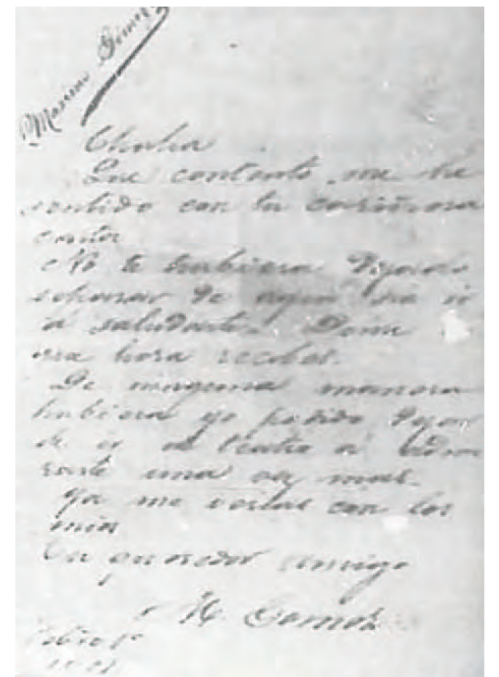 Maximo Gomez
Chalia
Que contento me he
sentido con tu cariñosa
carta
No te hubiera dejado
separar de aquí sin ir
á saludarte. Dime
que hora recibes.
De ninguna manera
hubiera yo podido dejar
de ir al teatro á admi
rarte una vez mas.
Ya me verias con los
mios
Tu queredor amigo
M. Gomez